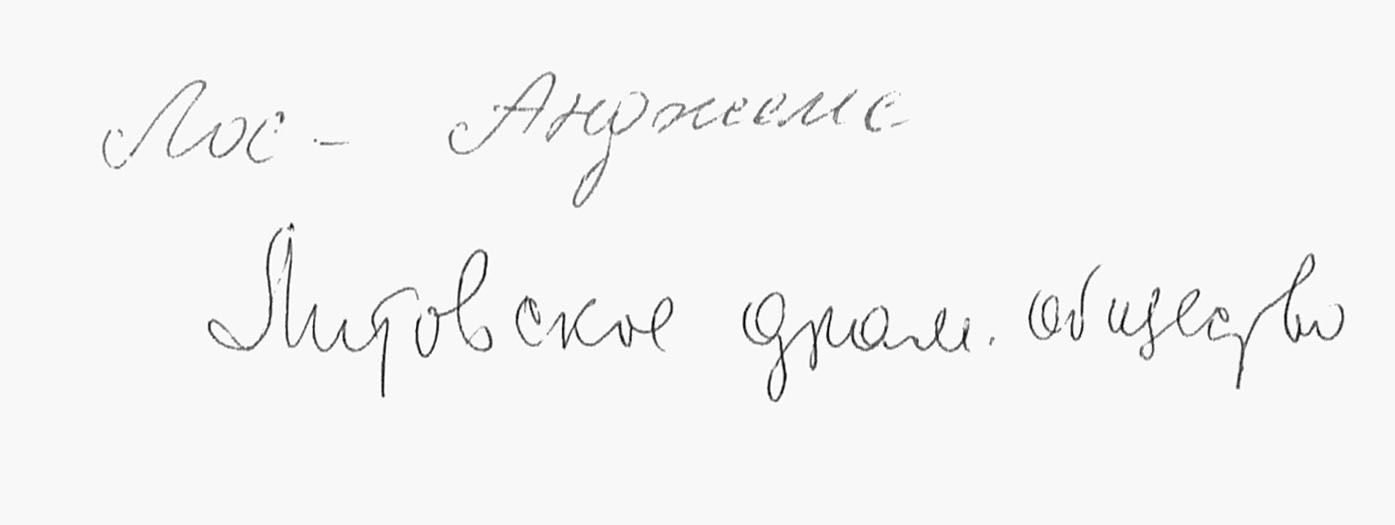 Лос - Анджелес
Литовское драм. общество